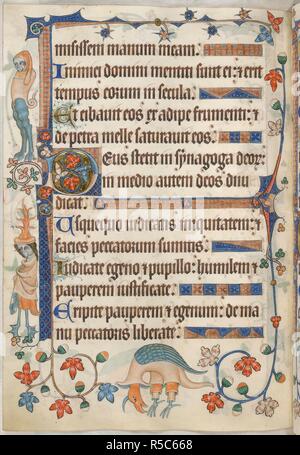 misissem manum meam.
Inimici domini mentiti sunt ei: & erit
tempus eorum in secula.
Et cibauit eos ex adipe frumenti: &
de petra melle saturauit eos.
Deus stetit in synagoga deor:
in medio autem deos diiu
dicat.
Usquequo iudicatis iniquitatem: &
facies peccatorum sumitis.
Iudicate egeno & pupillo: humilem &
pauperem iustificate.
Eripite pauperem & egenum: de ma
nu peccatoris liberate.
alamy
www.alamy.com - R5C668